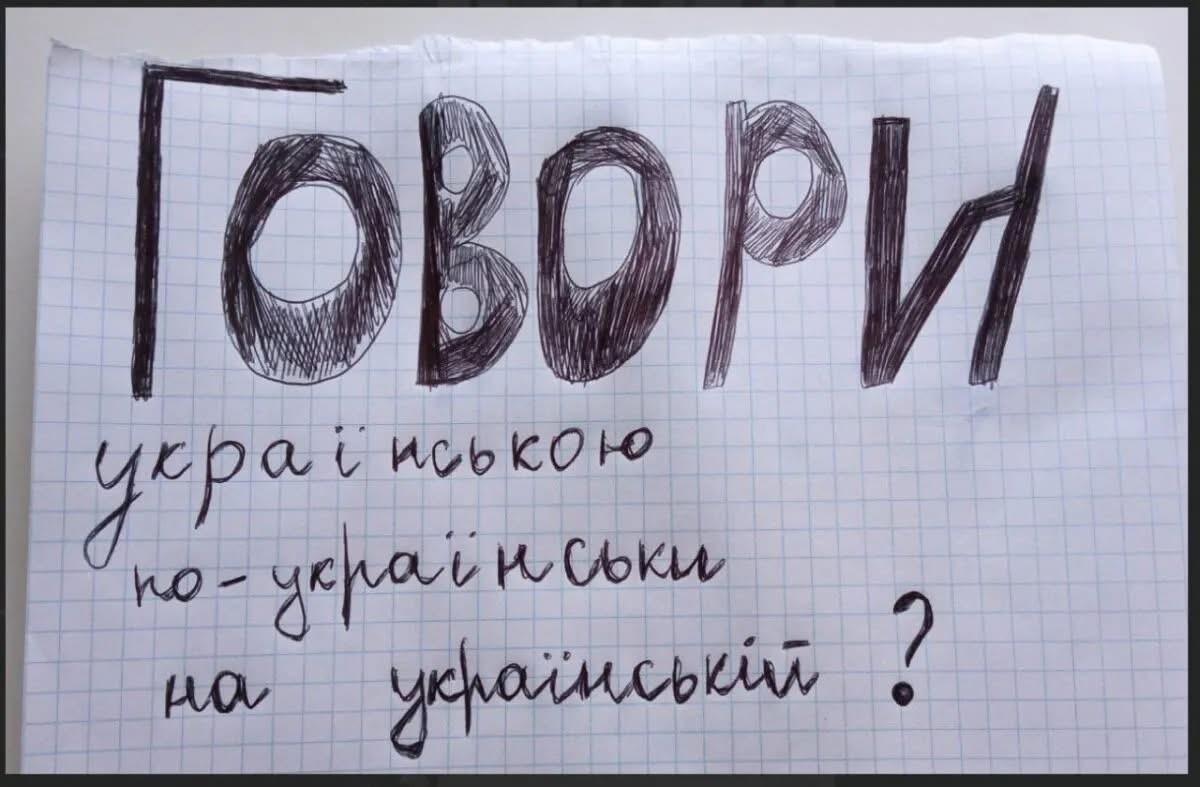 ГОВОРИ
українською
по-українськи
на українській ?